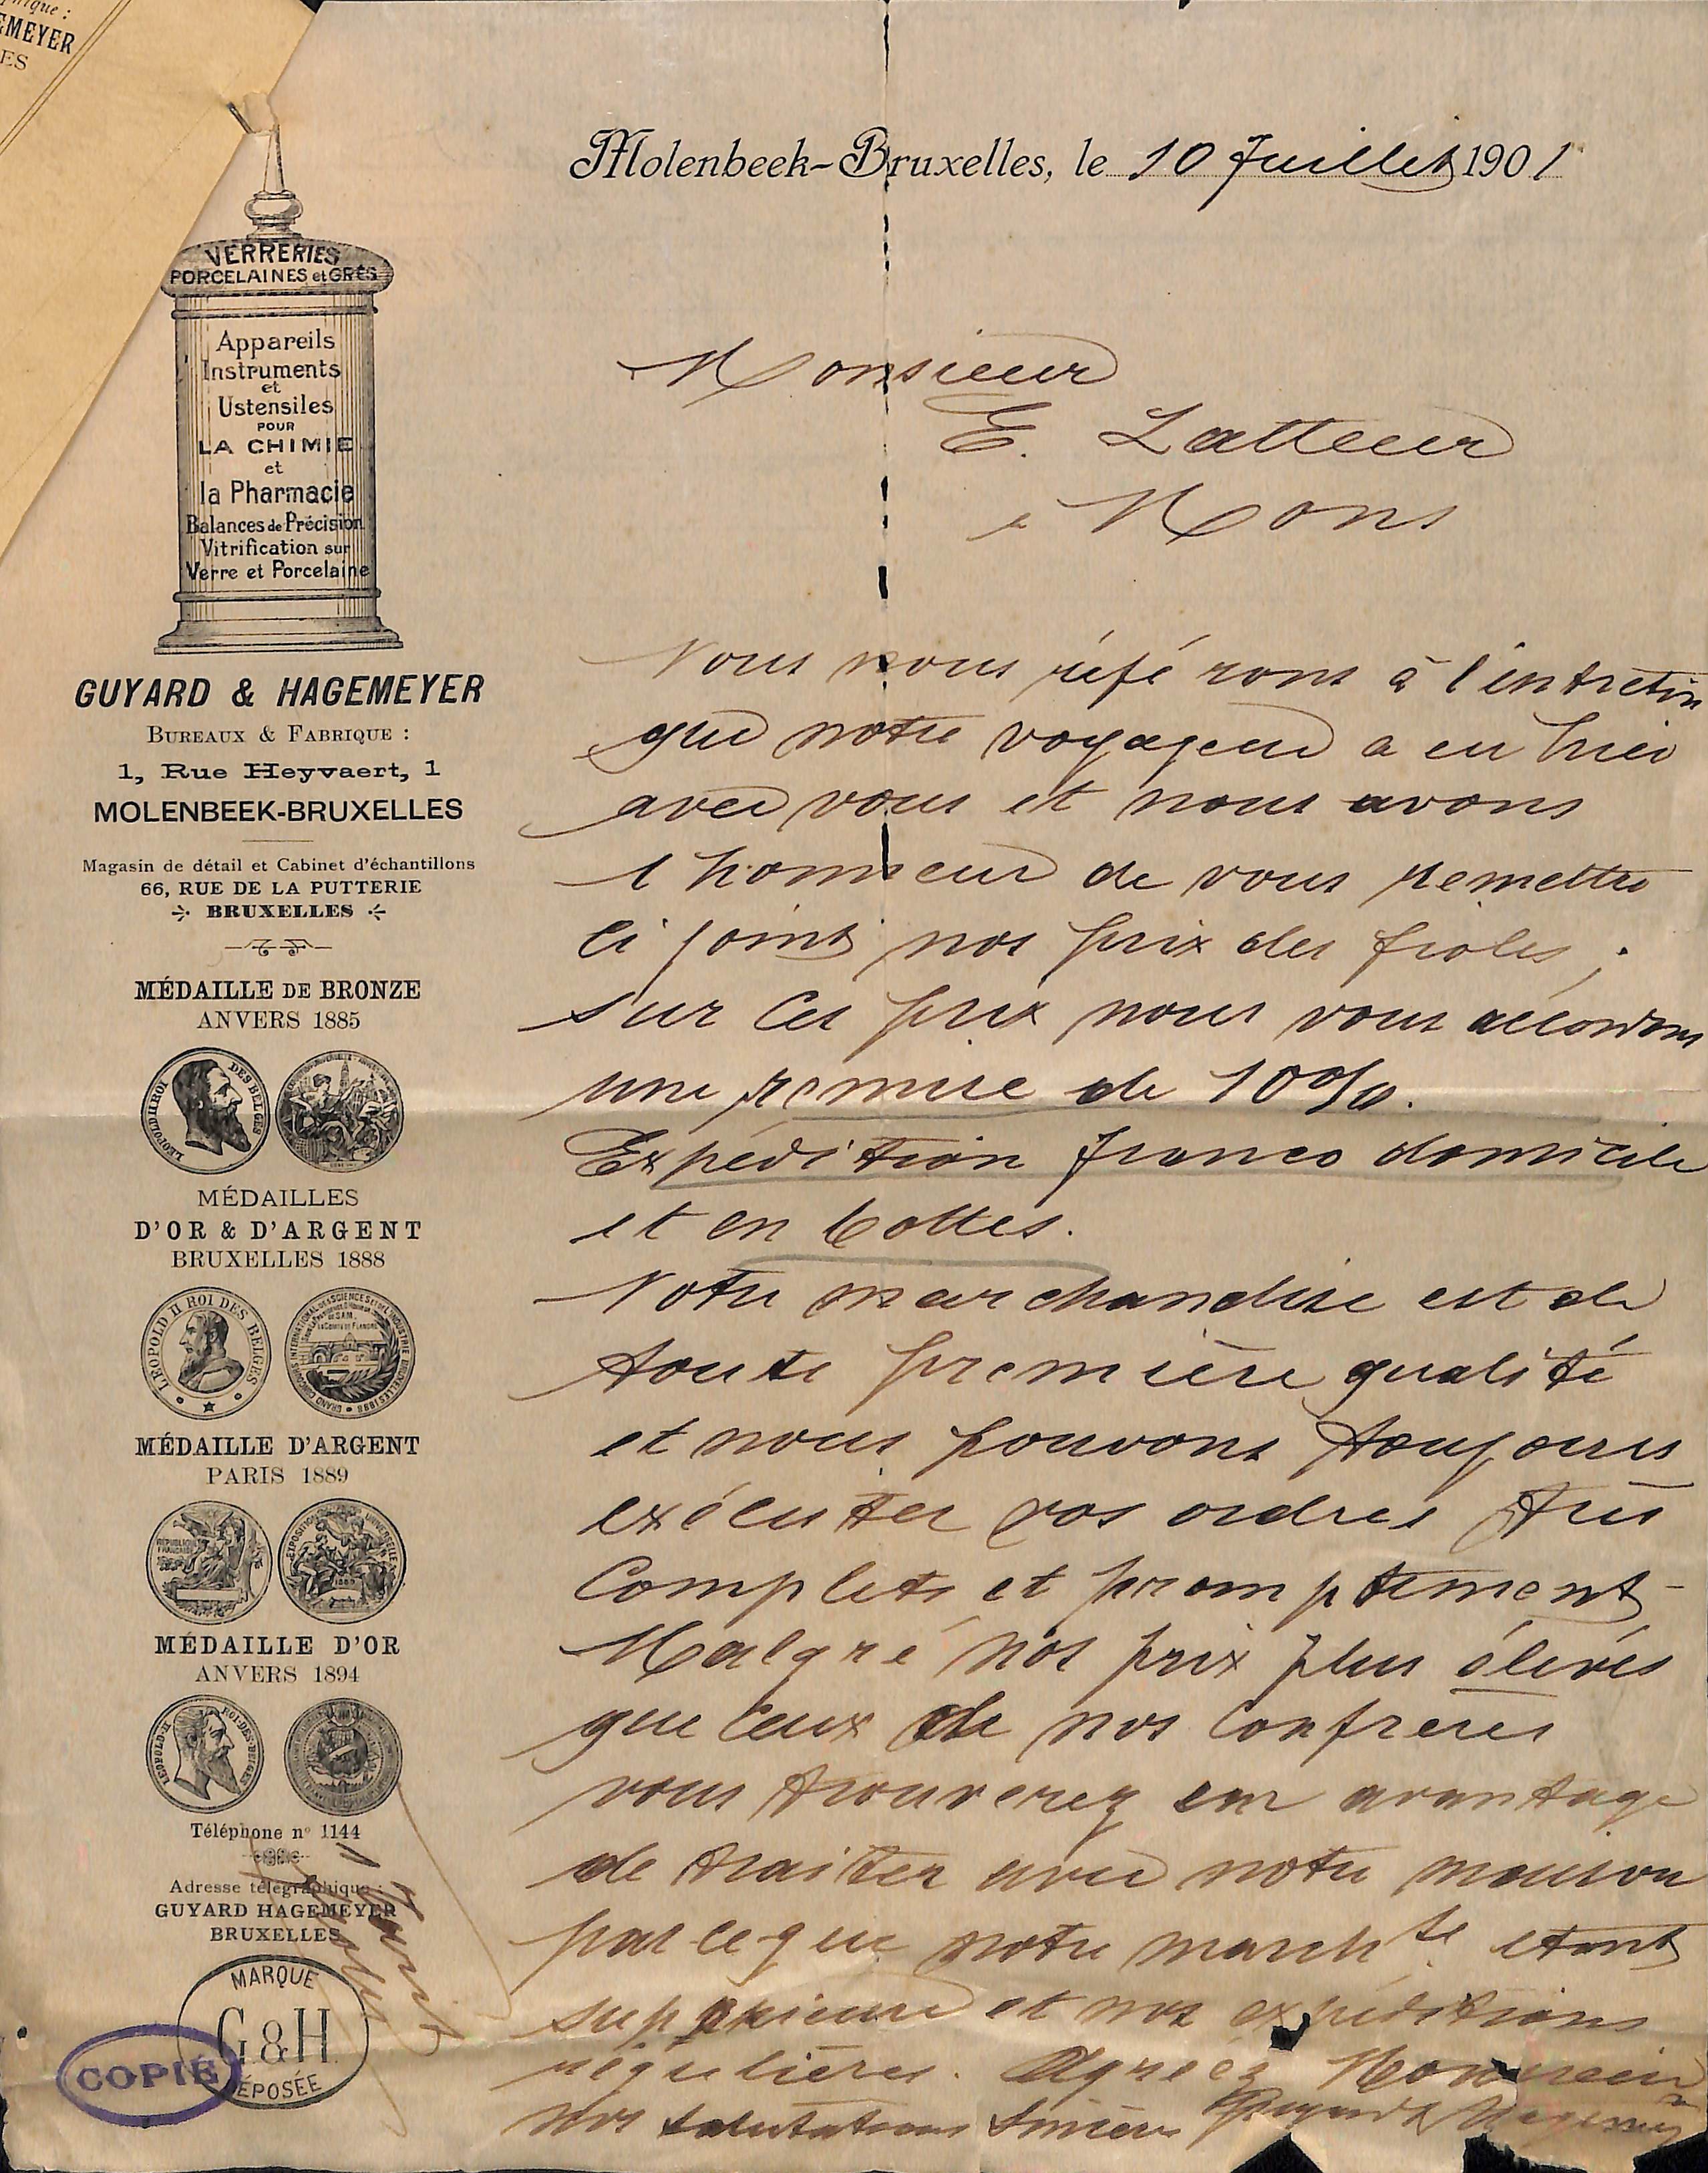 phique :
EMEYER
ES
Molenbeek-Bruxelles, le 10 Juillet 1901
VERRERIES
PORCELAINES et GRÈS
Appareils
Instruments
et
Ustensiles
POUR
LA CHIMIE
et
la Pharmacie
Balances de Précision
Vitrification sur
Verre et Porcelaine
GUYARD & HAGEMEYER
BUREAUX & FABRIQUE :
1, Rue Heyvaert, 1
MOLENBEEK-BRUXELLES
Magasin de détail et Cabinet d'échantillons
66, RUE DE LA PUTTERIE
BRUXELLES
MÉDAILLE DE BRONZE
ANVERS 1885
LEOPOLD II ROI DES BELGES
MÉDAILLES
D'OR & D'ARGENT
BRUXELLES 1888
LEOPOLD II ROI DES BELGES
GRAND CONCOURS INTERNATIONAL DES SCIENCES ET DE L'INDUSTRIE BRUXELLES 1888
MÉDAILLE D'ARGENT
PARIS 1889
REPUBLIQUE FRANCAISE
EXPOSITION UNIVERSELLE
1889
MÉDAILLE D'OR
ANVERS 1894
LEOPOLD II ROI DES BELGES
Téléphone n° 1144
Adresse télégraphique :
GUYARD HAGEMEYER
BRUXELLES
MARQUE
G & H
DÉPOSÉE
COPIÉ
Monsieur
E. Latteur
à Mons
Nous nous référons à l'entretien
que notre voyageur a eu hier
avec vous et nous avons
l'honneur de vous remettre
ci joint nos prix des fioles ;
sur ces prix nous vous accordons
une remise de 10%.
Expédition franco domicile
et en bottes.
Notre marchandise est de
toute première qualité
et nous pouvons toujours
exécuter vos ordres très
complets et promptement -
Malgré nos prix plus élevés
que ceux de nos confrères
vous trouverez un avantage
de traiter avec notre maison
parceque notre march.se étant
supérieure et nos expéditions
régulières. Agréez Monsieur
nos salutations sincères Guyard & Hagemeyer